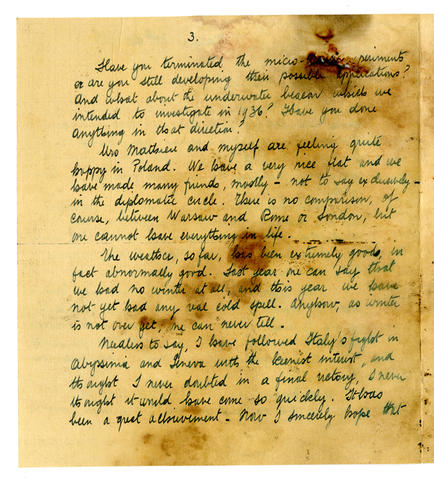 3.
Have you terminated the micro- experiments
or are you still developing their possible applications?
And what about the underwater beacon which we
intended to investigate in 1936? Have you done
anything in that direction?
Mrs Mathieu and myself are feeling quite
happy in Poland. We have a very nice flat and we
have made many friends, mostly - not to say exclusively -
in the diplomatic circle. There is no comparison, of
course, between Warsaw and Rome or London, but
one cannot have everything in life.
The weather, so far, has been extremely good, in
fact abnormally good. Last year one can say that
we had no winter at all, and this year we have
not yet had any real cold spell. Anyhow, as winter
is not over yet, one can never tell.
Needless to say, I have followed Italy's fight in
Abyssinia and Geneva with the keenest interest, and
thought I never doubted in a final victory, I never
thought it would have come so quickly. It has
been a great achievement - Now I sincerely hope that